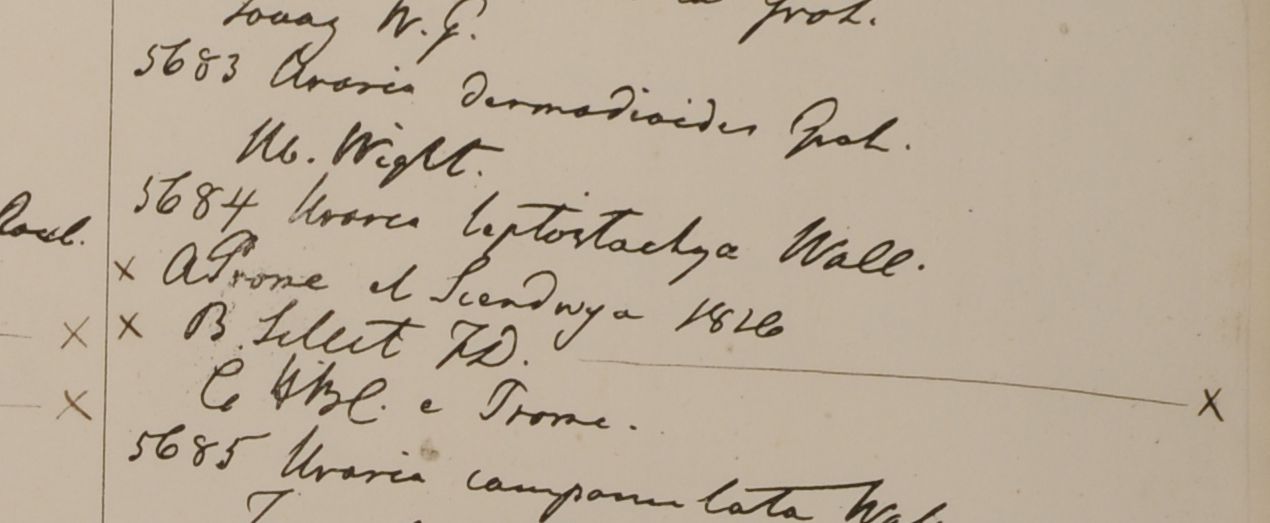 Tavoy W.G.
Grah.
5683 Uraria desmodioides Grah.
Hb. Wight.
5684 Uraria leptostachya Wall.
Roxb.
× A Prome et Segwdwyn 1826
× × B. Sillet F.D. ×
× C HBC. e Prome.
5685 Uraria campanulata Wall